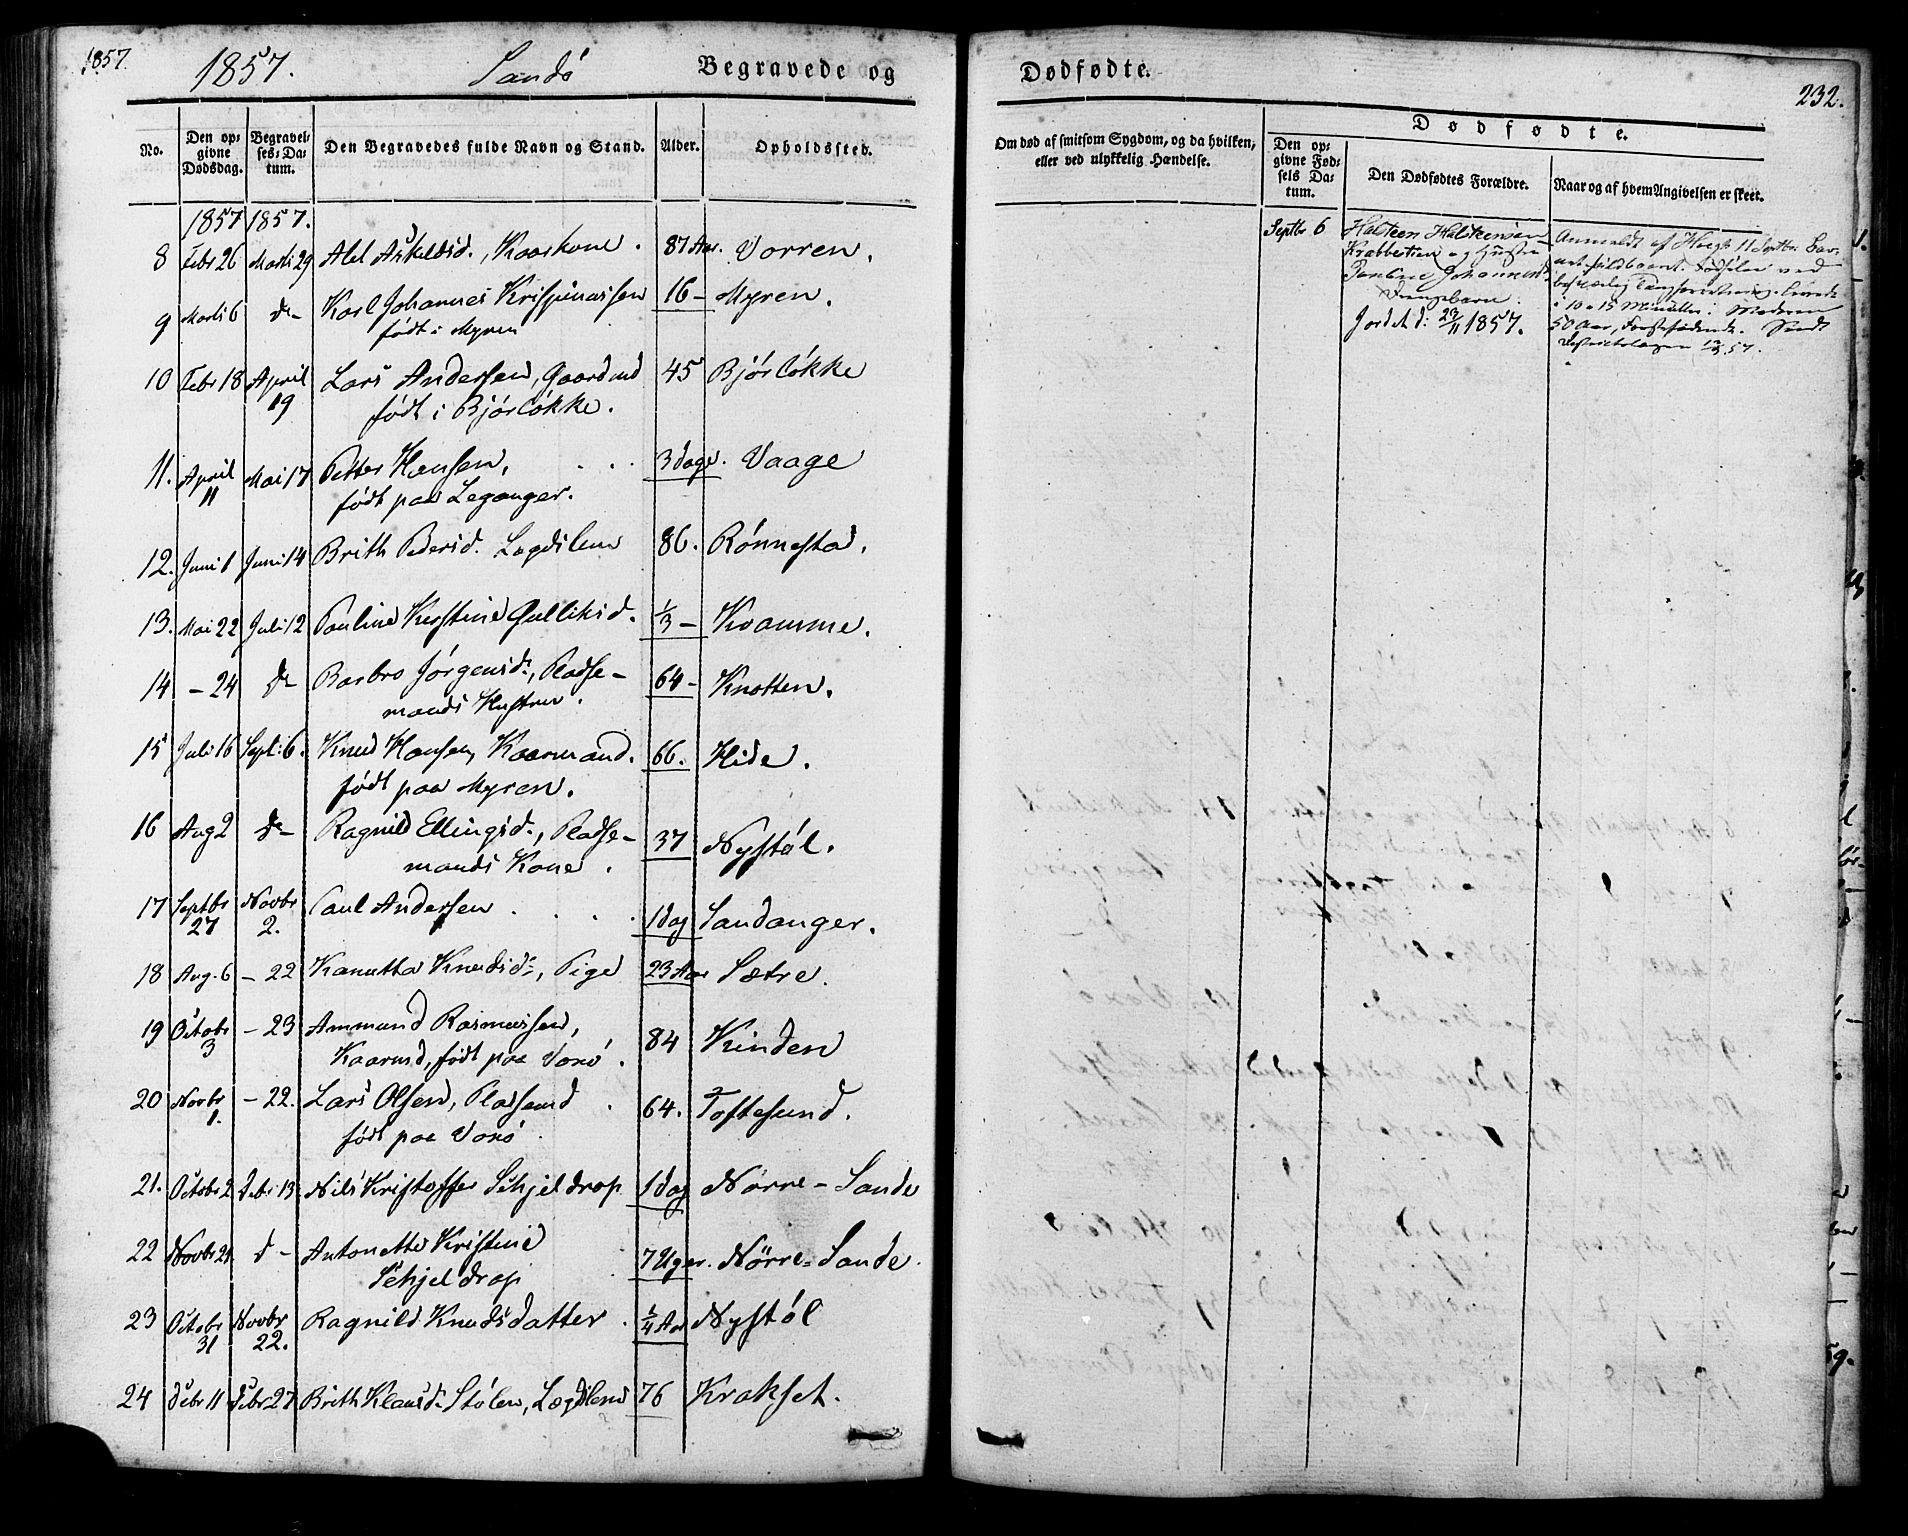 1857.
1857. Sandö Begravede og
No. Den opgivne Dødsdag. Begravelses-Datum. Den Begravedes fulde Navn og Stand. Alder. Opholdssted.
1857 1857.
8 Febr 26 Marti 29 Abel Askeldsd., Kaarkone. 87 Aar. Vorren.
9 Marti 6 do Karl Johannes Krispinussen 16 – Myren.
født i Myren
10 Febr 18 April 19 Lars Andersen, Gaardmd 45 Bjørløkke
født i Bjørløkke.
11. April 11 Mai 17 Petter Hansen, 3 dage. Vaage
født paa Leganger.
12. Juni 1 Juni 14 Brith Pedersd. Lægdslem 86. Rønnestad.
13. Mai 22 Juli 12 Pauline Kirstine Gulliksd. 1/3 – Kvamme.
14 – 24 do Barbro Jørgensd., Pladse-
mands Hustru. 64 – Knotten.
15 Juli 16 Sept. 6. Knud Hansen, Kaarmand. 66. Hide.
født paa Myren.
16 Aug 2 do Ragnild Ellingsd., Pladse-
mands Kone. 37 Nystøl.
17 Septbr 27 Novbr 2. Paul Andersen 1 dag Sandanger.
18 Aug. 6 – 22 Kanutta Knudsd., Pige 23 Aar Sætre.
19 Octobr 3 – 23 Ammund Rasmussen,
Kaarmd, født paa Voxø. 84 Kinden
20 Novbr 1. – 22. Lars Olsen, Pladsemd 64. Toftesund.
født paa Voxø.
21. Octobr 2 Debr 13 Nils Kristoffer Schjeldrop 1 dag Nørre-Sande
22 Novbr 21 d – Antonette Kristine
Schjeldrop 7 Uger. Nörre-Sande.
23 Octobr 31 Novbr 22. Ragnild Knudsdatter. 1/4 Aar Nystøl
24 Debr 11 Debr 27 Brith Klausd. Stølen, Lægdslem 76 Krakset.
Dødfødte.
232.
Om død af smitsom Sygdom, og da hvilken,
eller ved ulykkelig Hændelse.
Dødfødte.
Den opgivne Fødsels Datum. Den Dødfødtes Forældre. Naar og af hvem Angivelsen er skeet.
Septbr 6 Halsteen Halsteensen
Krabbestien og Hustru
Pauline Johannesd.
Drengebarn.
Jordet d: 23/11 1857.
Anmeldt af 11 Septbr. Bar-
net fuldbaaret. Fødselen ved
i 10 a 15 Minutter. Moderen
50 Aar, Førstefødende. Sendt
Districtslægen 57.